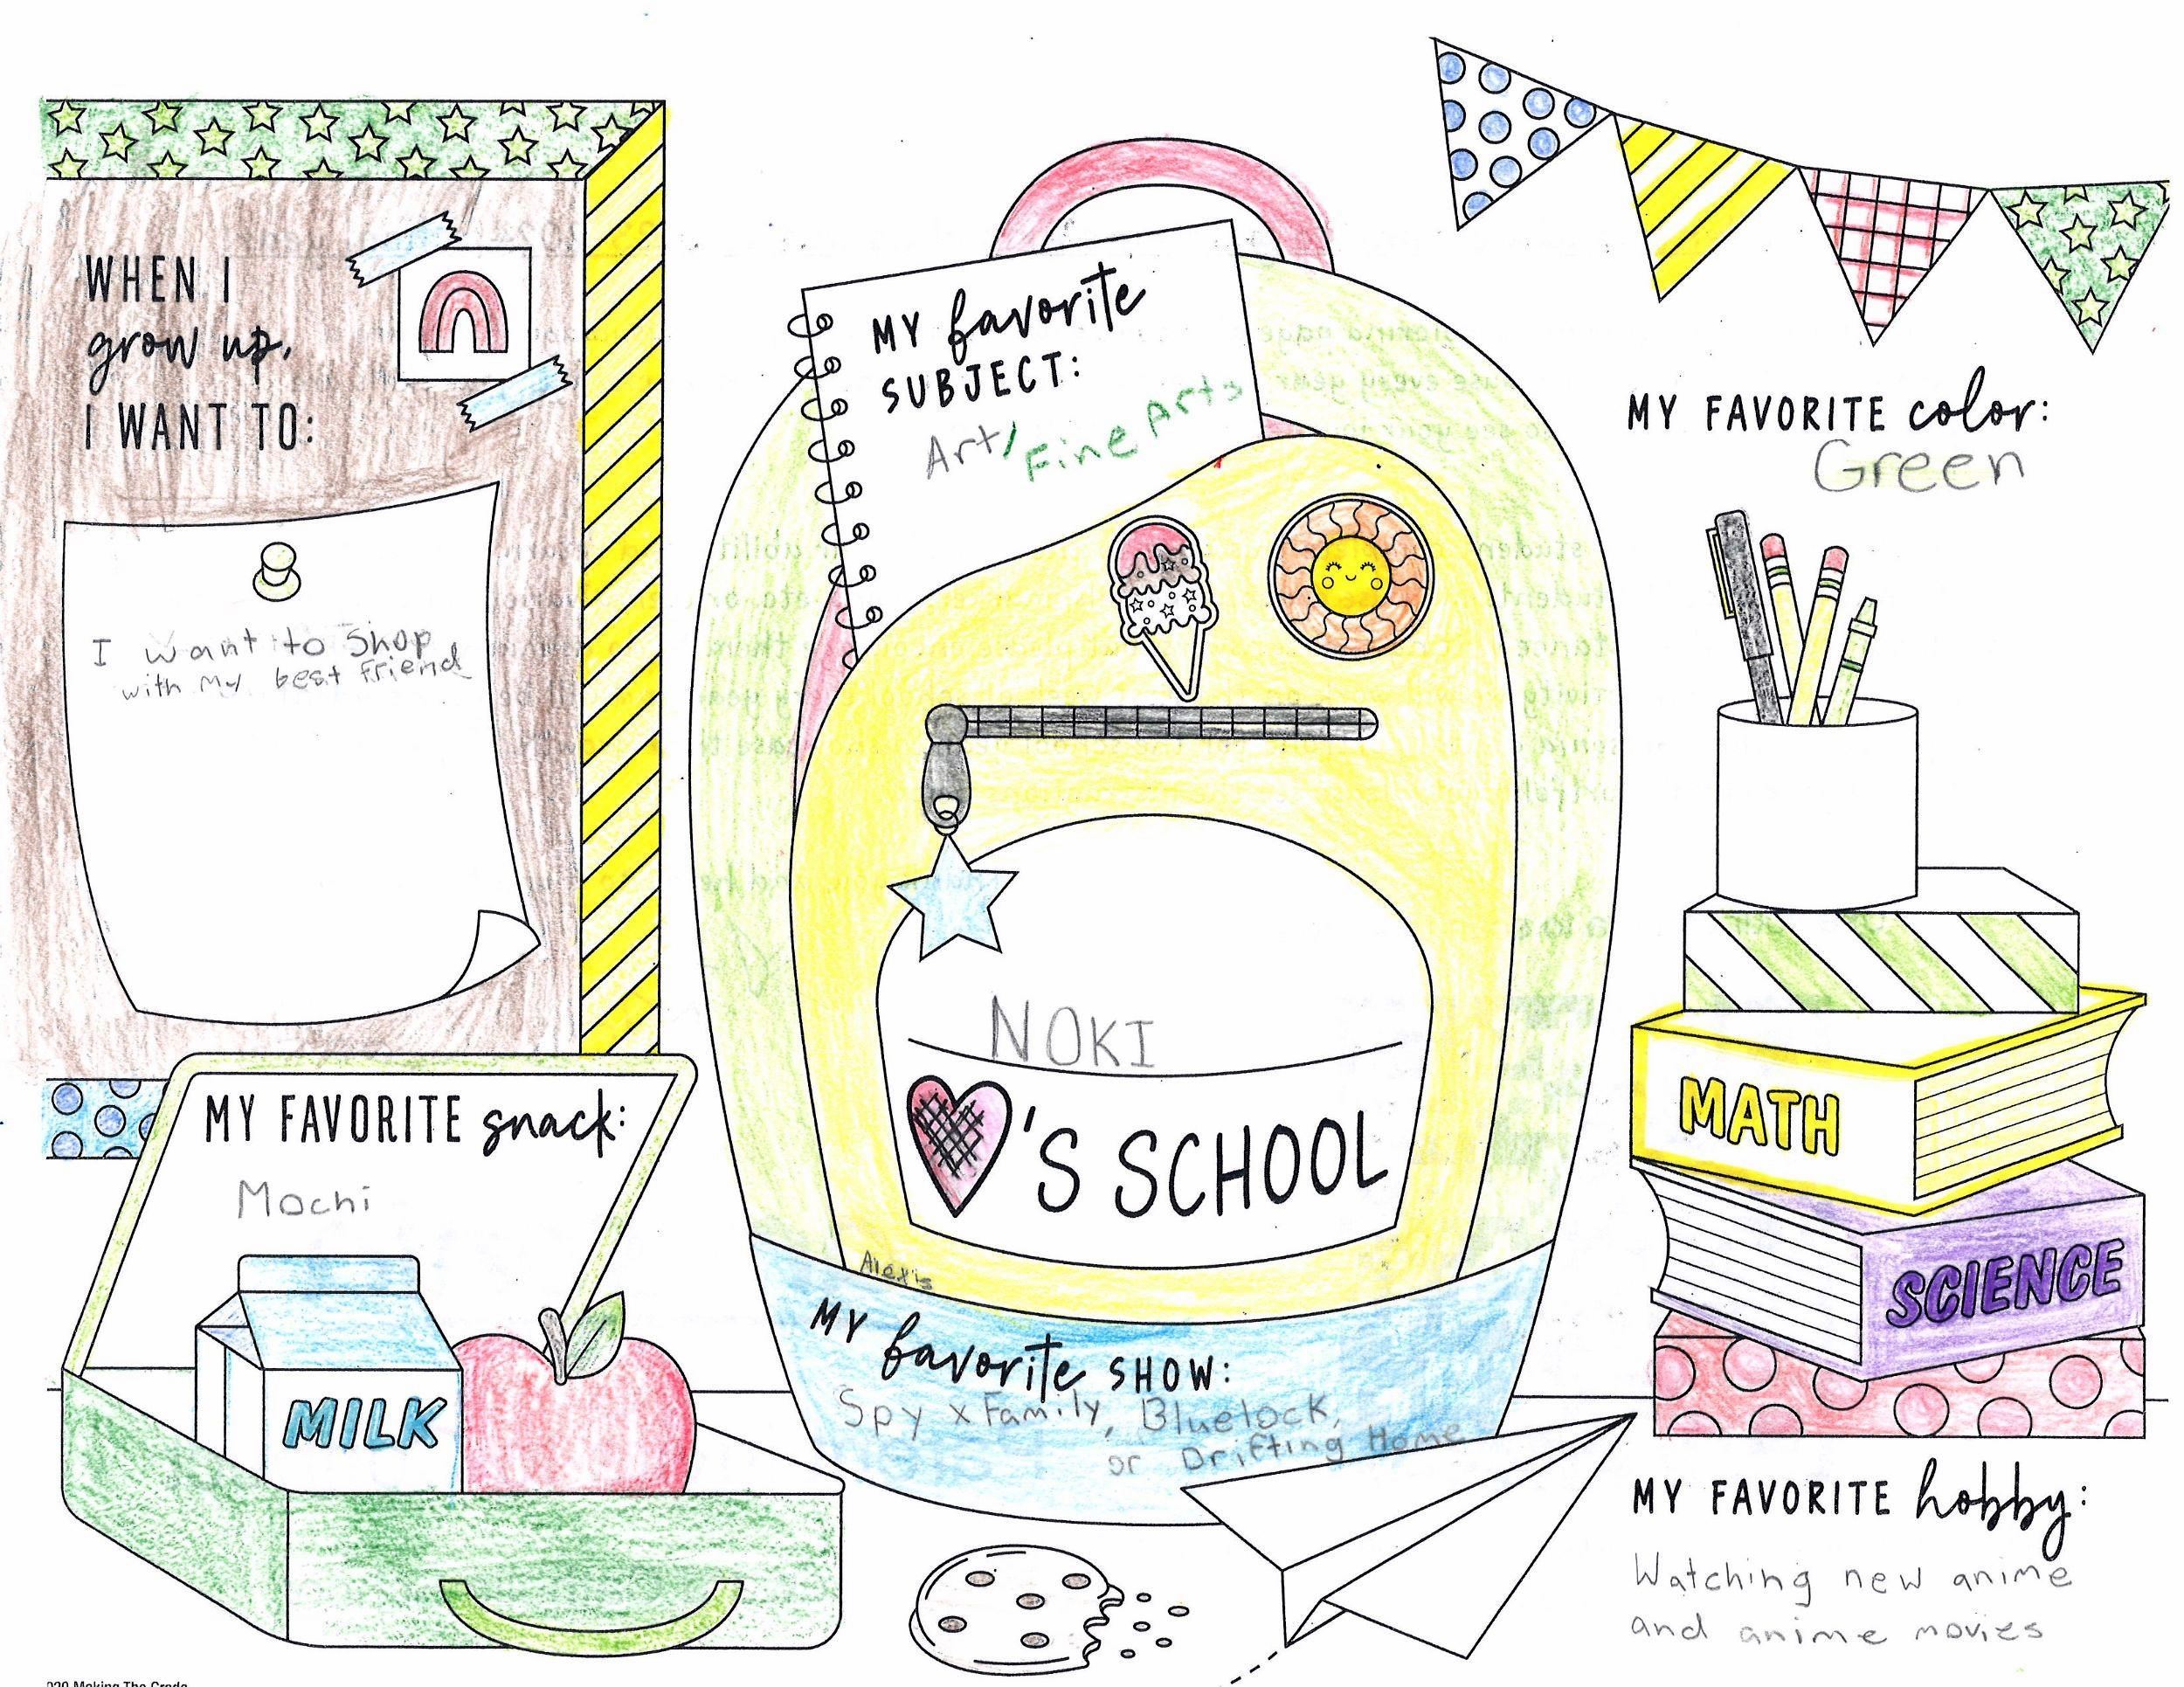 WHEN I
grow up,
I WANT TO:
I want to Shop
with My best Friend
MY FAVORITE snack:
Mochi
MILK
MY favorite
SUBJECT:
Art/Fine Arts
NOKI
'S SCHOOL
Alexis
MY favorite SHOW:
Spy x Family, Bluelock,
or Drifting Home
MY FAVORITE color:
Green
MATH
SCIENCE
MY FAVORITE hobby:
Watching new anime
and anime movies
020 Making The Grade